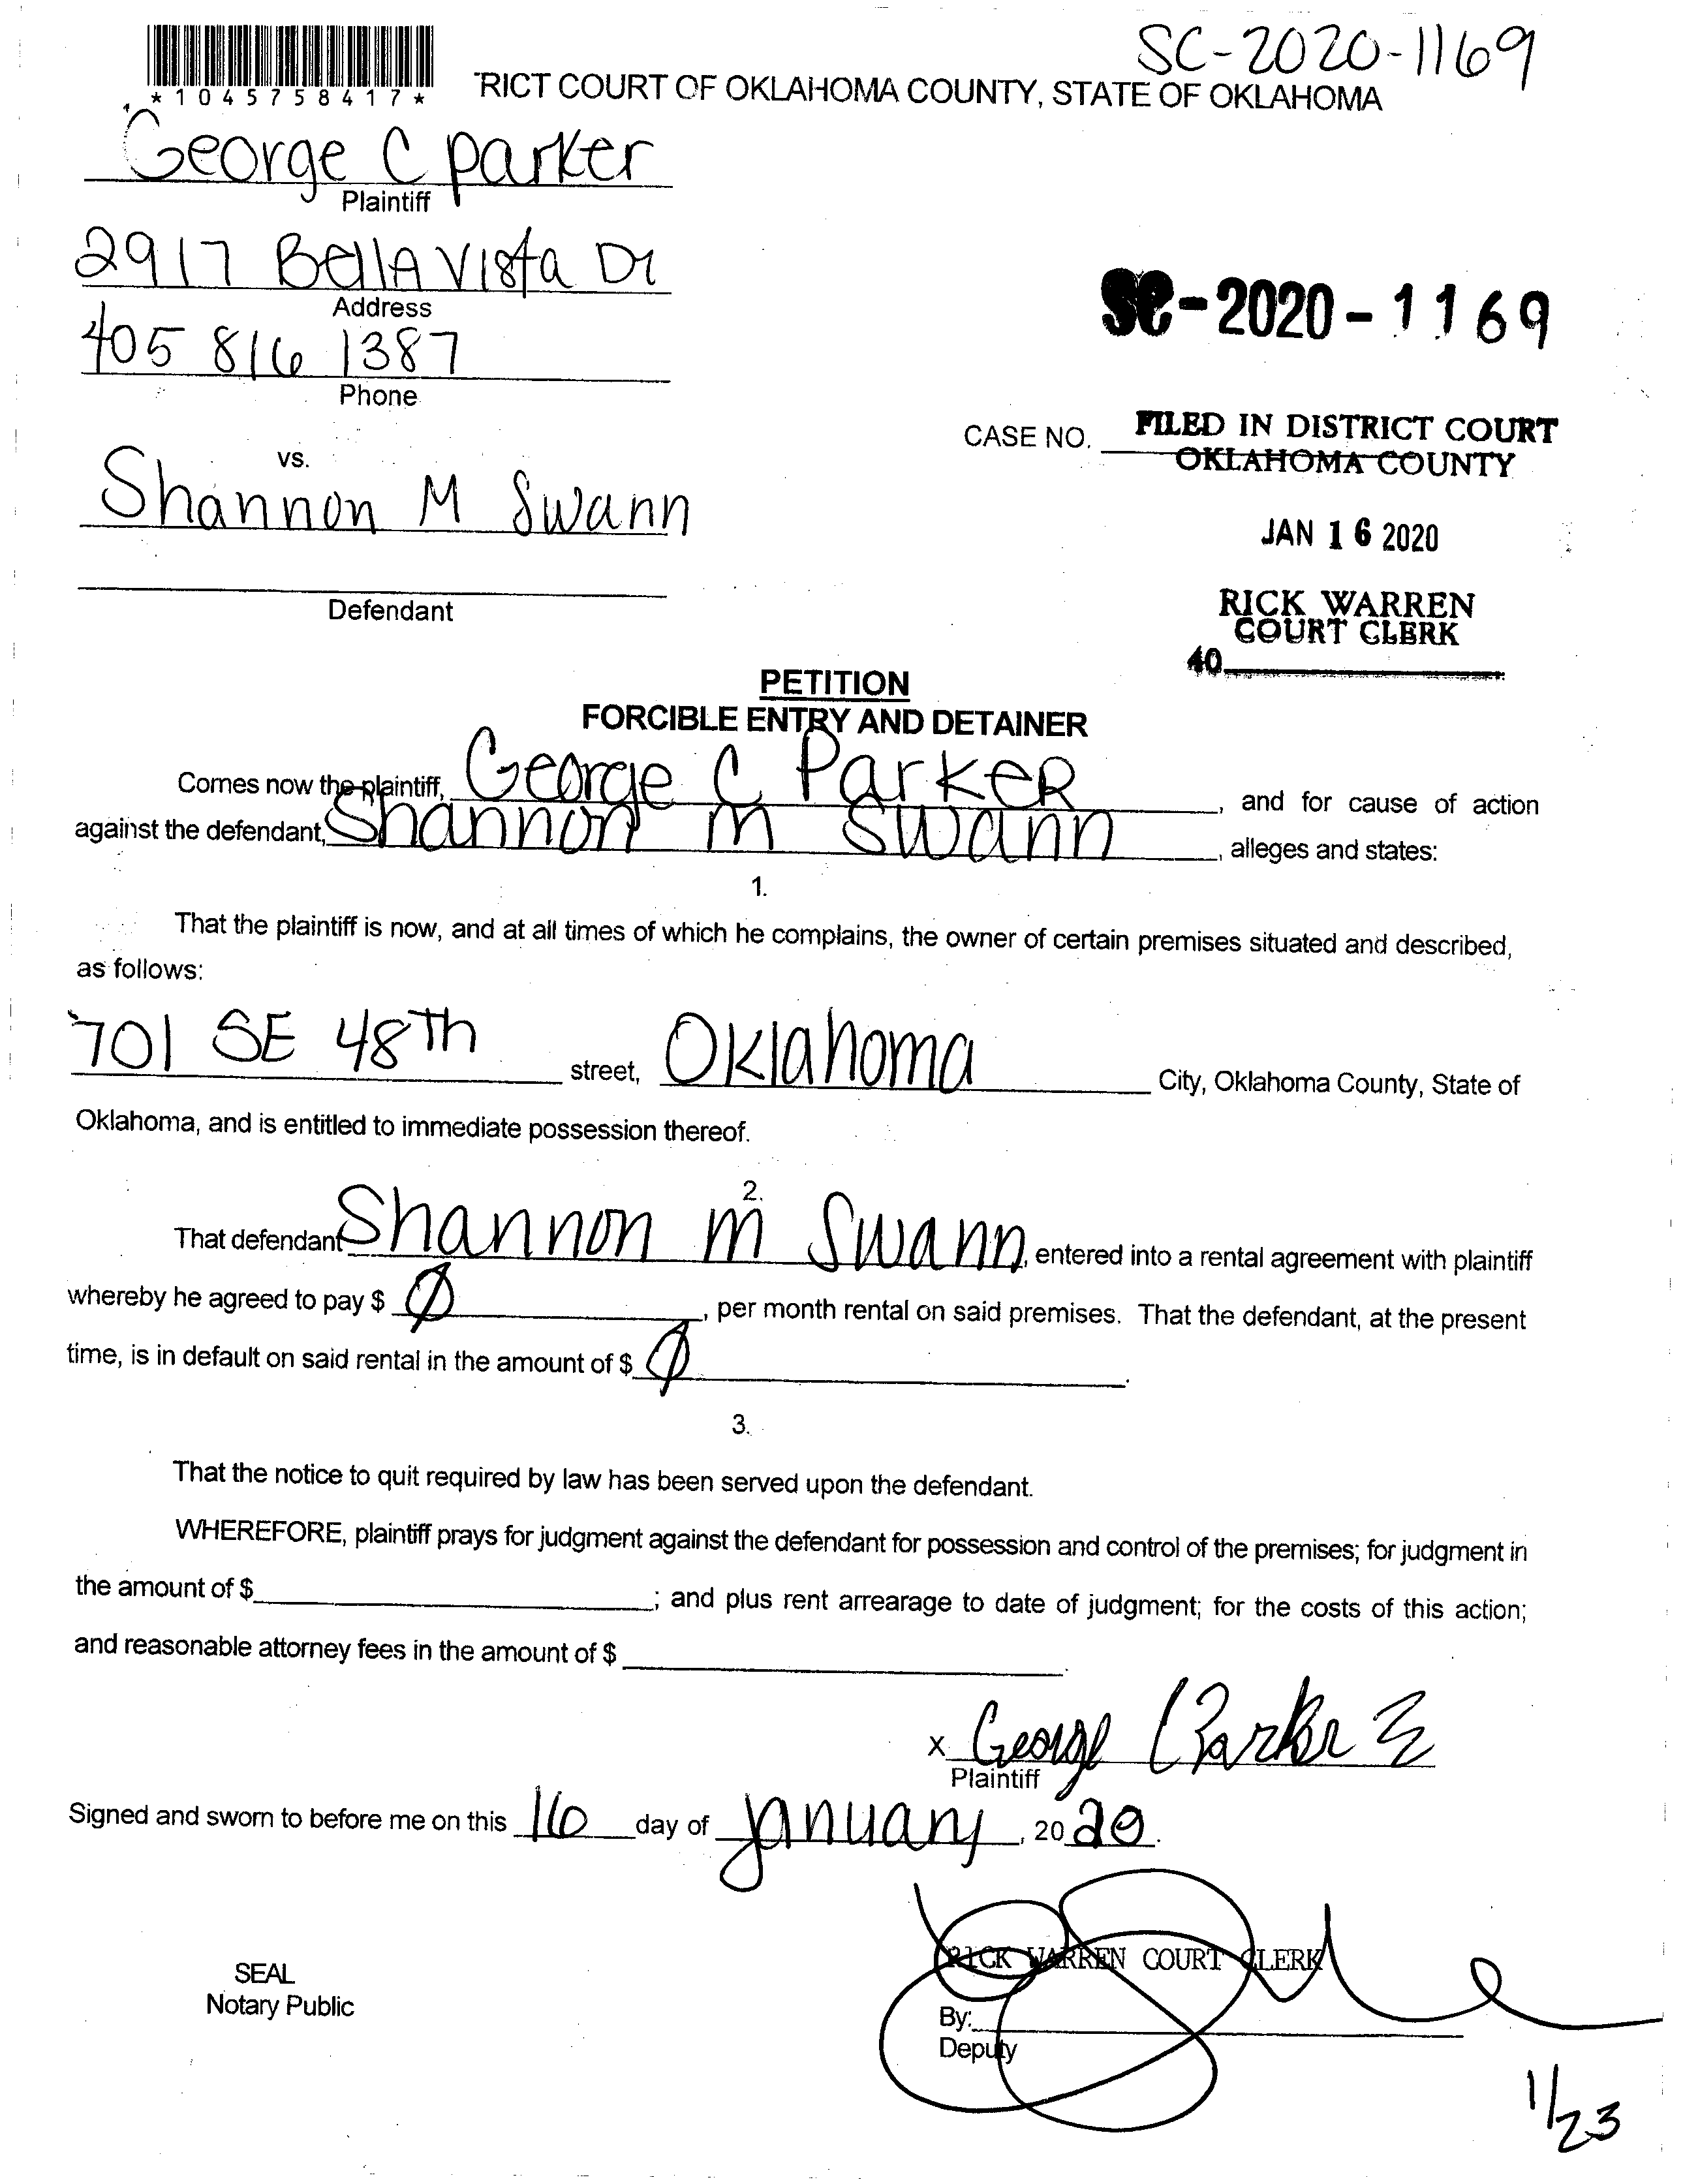 SC-2020-1169
*1045758417*
RICT COURT OF OKLAHOMA COUNTY, STATE OF OKLAHOMA
George C parker
Plaintiff
2917 Bella Vista Dr
Address
405 816 1387
Phone
SC-2020-1169
CASE NO.
FILED IN DISTRICT COURT
OKLAHOMA COUNTY
vs.
Shannon M Swann
JAN 16 2020
Defendant
RICK WARREN
COURT CLERK
40
PETITION
FORCIBLE ENTRY AND DETAINER
Comes now the plaintiff, George C Parker, and for cause of action
against the defendant, Shannon m Swann, alleges and states:
1.
That the plaintiff is now, and at all times of which he complains, the owner of certain premises situated and described,
as follows:
701 SE 48Th street, Oklahoma City, Oklahoma County, State of
Oklahoma, and is entitled to immediate possession thereof.
2.
That defendant Shannon m Swann, entered into a rental agreement with plaintiff
whereby he agreed to pay $ Ø, per month rental on said premises. That the defendant, at the present
time, is in default on said rental in the amount of $ Ø.
3.
That the notice to quit required by law has been served upon the defendant.
WHEREFORE, plaintiff prays for judgment against the defendant for possession and control of the premises; for judgment in
the amount of $ ; and plus rent arrearage to date of judgment; for the costs of this action;
and reasonable attorney fees in the amount of $ .
x George C Parker
Plaintiff
Signed and sworn to before me on this 16 day of January, 2020.
RICK WARREN COURT CLERK
SEAL
Notary Public
By:
Deputy
1/23